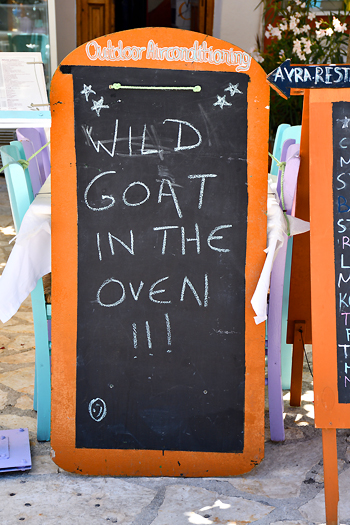 Outdoor Airconditioning
WILD
GOAT
IN THE
OVEN
!!!
AVRA.REST